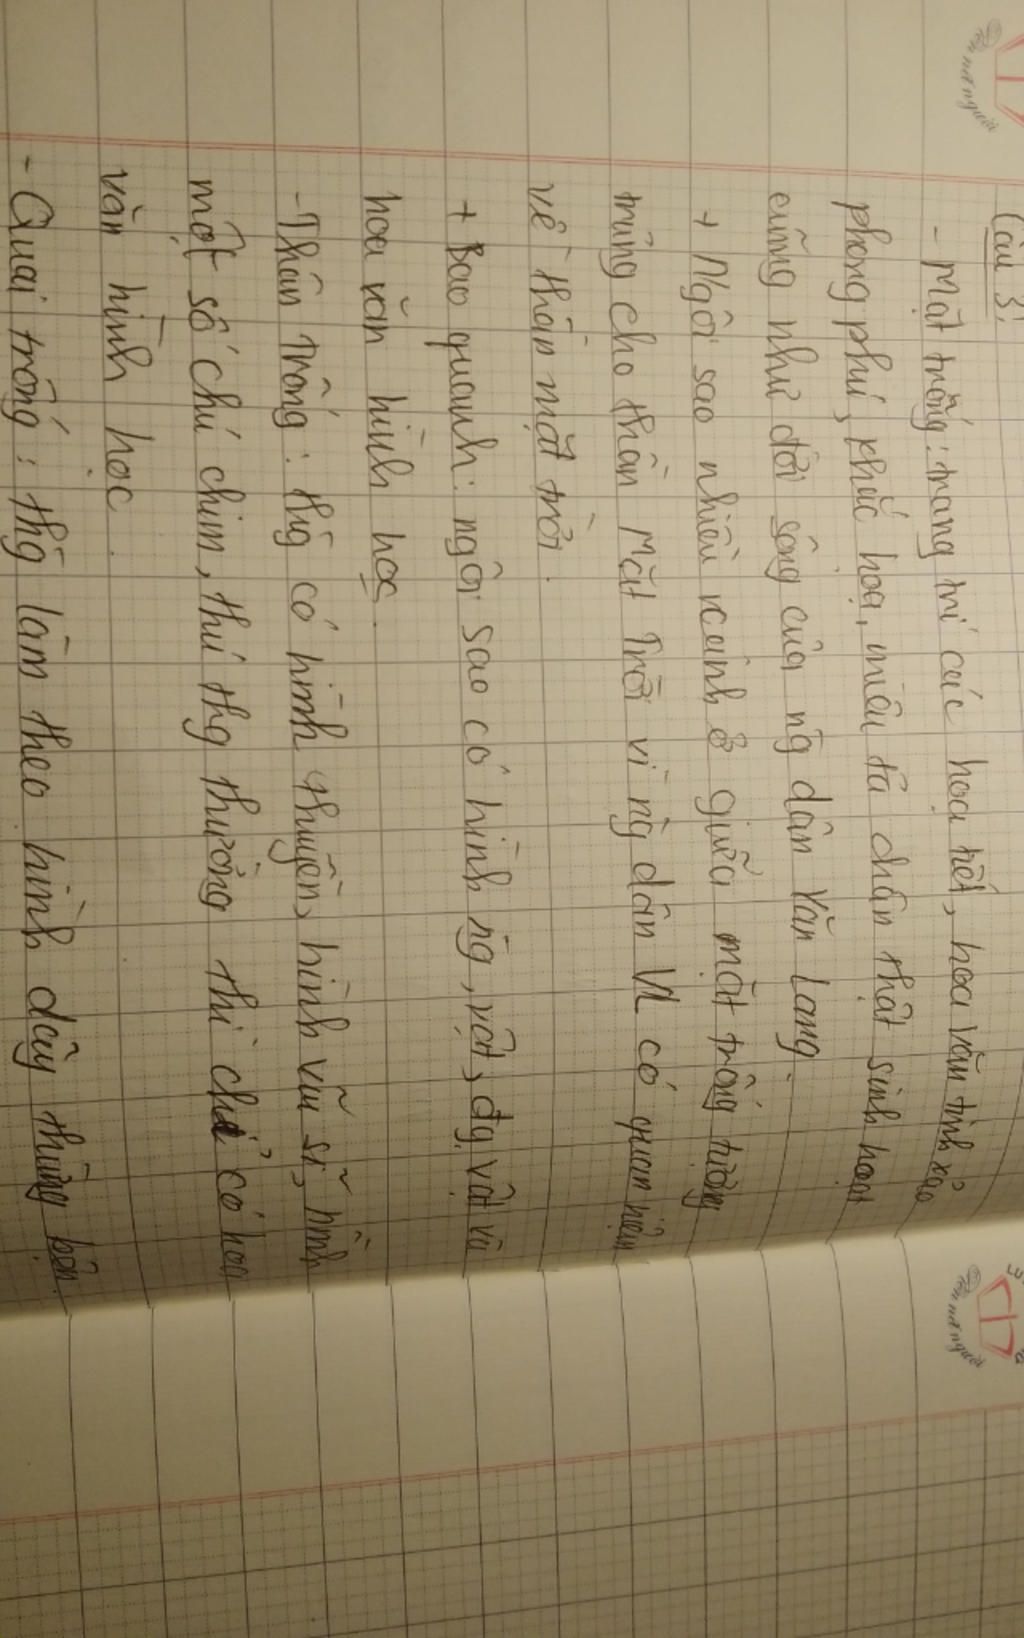 Câu 3:
- Mặt trống: trang trí các hoạ tiết, hoa văn tinh xảo
phong phú, khắc hoạ, miêu tả chân thật sinh hoạt
cũng như đời sống của ng dân Văn Lang.
+ Ngôi sao nhiều cánh ở giữa mặt trống tượng
trưng cho thần Mặt Trời vì ng dân VL có quan niệm
về thần mặt trời.
+ Bao quanh: ngôi sao có hình ng, vật, đg vật và
hoa văn hình học.
- Thân trống: thg có hình thuyền, hình vũ sĩ, hình
một số chú chim, thú thg thường thì chỉ có hoa
văn hình học.
- Quai trống: thg làm theo hình dây thừng bện.
Nét nết người
Nét nết người